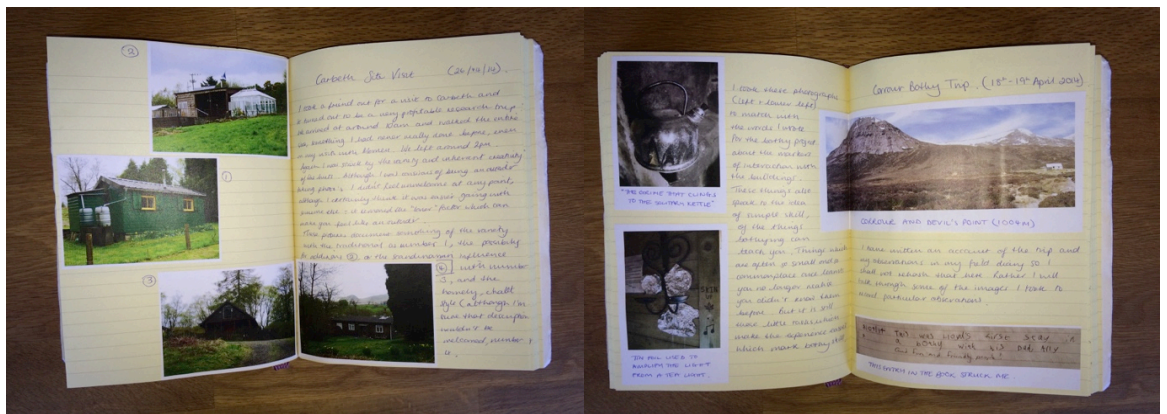 2
1
3
Carbeth Site Visit (26/04/14).
I took a friend out for a visit to Carbeth and
it turned out to be a very profitable research trip!
We arrived at around 10am and walked the entire
site, I had never really done before, even
on my visit with Kevin. We left around 2pm.
Again I was struck by the variety and inherent creativity
of the huts. Although I was anxious of being an outsider
being there, I didn't feel unwelcome at any point,
although I certainly think it was easier going with
someone else: it removed the "loner" factor which can
make you feel like an outsider.
These pictures document something of the variety
with the traditional as number 1, the
additions 2, or the Scandinavian influence
4
with number
3, and the
homely, chalet
style (although I'm
sure that description
wouldn't be
welcomed, number 4
is.
"THE GRIME THAT CLINGS
TO THE KETTLE"
"TIN FOIL USED TO
AMPLIFY THE LIGHT
FROM A TEA LIGHT.
I took these photographs
(left + lower left)
to match with
the words I wrote
for the bothy project
about the markers
of interaction with
the buildings.
These things also
speak to the idea
of simple skill,
of the things
bothying can
teach you. Things which
are often so small and
commonplace once learned
you no longer realise
you didn't know them
before. But it is still
these little measures which
make the experience and
which mark bothy
Corrour Bothy Trip. (18th-19th April 2014)
CORROUR AND DEVIL'S POINT (1004M)
I have written an account of the trip and
my observations in my field diary so I
shall not rehash that here. Rather I will
talk through some of the images I took to
avoid particular observations.
This was first stay
a bothy with his Dad
THIS ENTRY IN THE BOOK STRUCK ME.